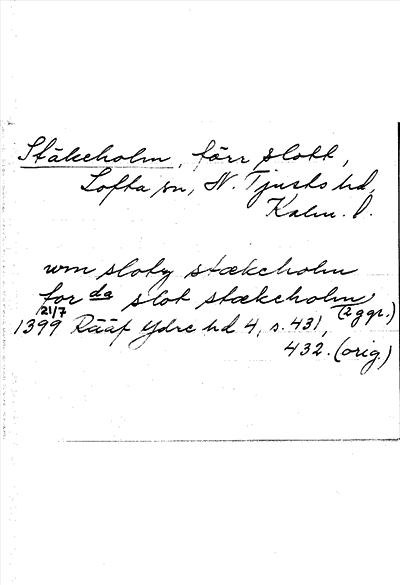 Stäkeholm, förr slott,
Lofta sn, N. Tjusts hd,
Kalm. l.
wm sloty stækeholm
for da slot stækeholm (2 ggr.)
21/7
1399 Rääf Ydre hd 4, s. 431,
432. (orig.)